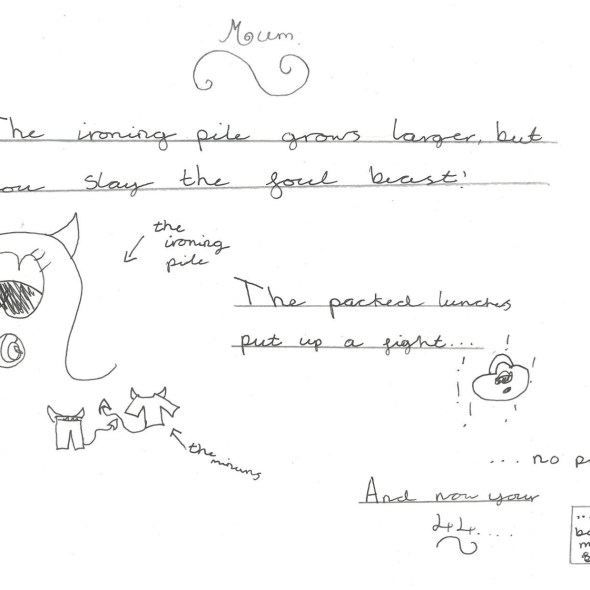 Mum
The ironing pile grows larger, but
you slay the foul beast!
the
ironing
pile
The packed lunches
put up a fight...
the minions
... no p
And now your
44....
...
b
m
&